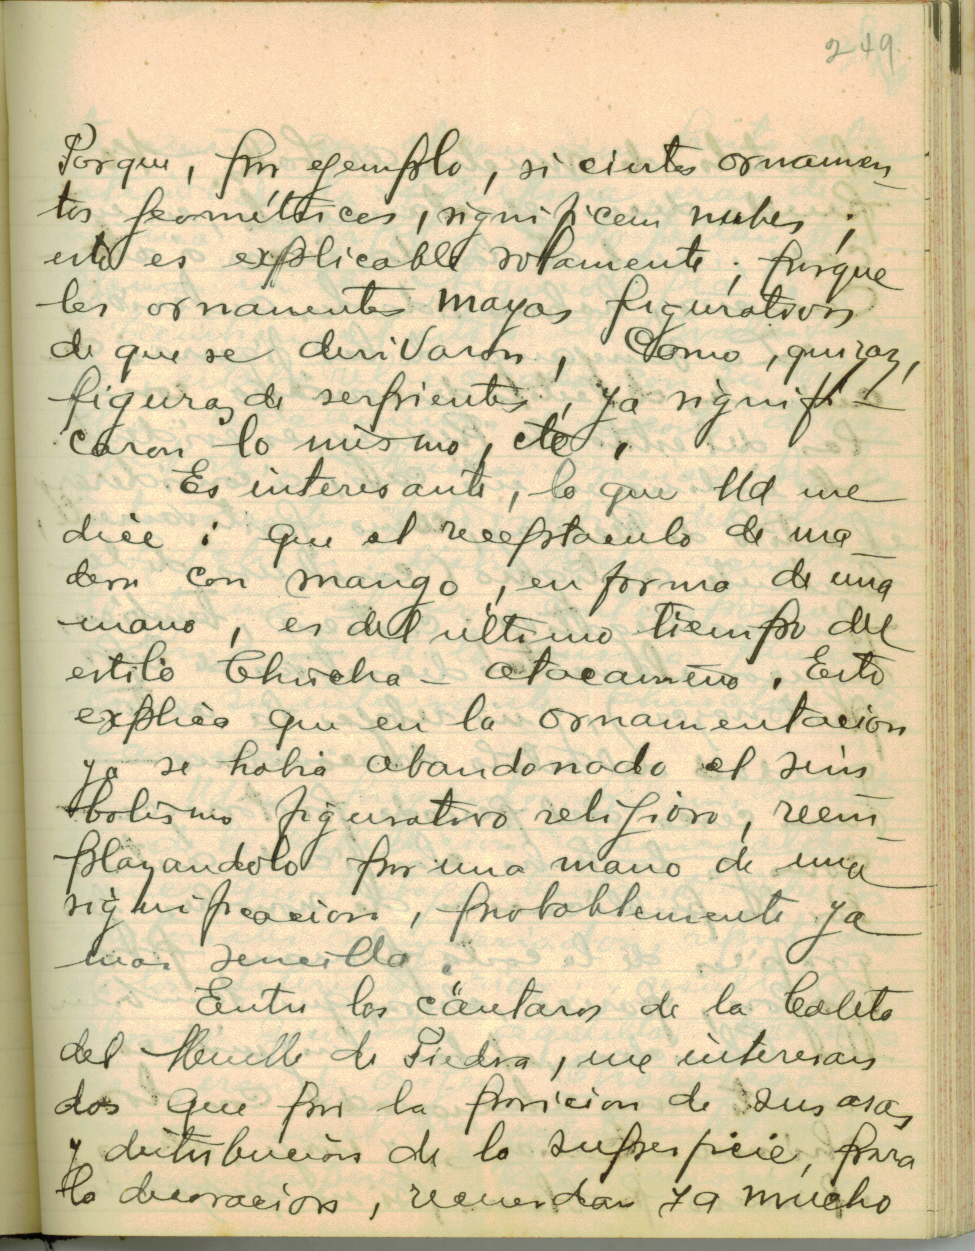 249
Porque, por ejemplo, si ciertos ornamen-
tos geométricos, significan nubes,
esto es explicable solamente; porque
los ornamentos mayas figurativos
de que se derivaron, como, quizas,
figuras de serpientes, ya signifi-
caron lo mismo, etc.,
Es interesante, lo que Ud me
dice: que el receptaculo de ma-
dera con mango, en forma de una
mano, es del último tiempo del
estilo Chincha-atacameño. Esto
explica que en la ornamentacion
ya se habia abandonado el sim
bolismo figurativo religioso, reem-
plazandolo por una mano de una
significacion, probablemente ya
mas sencilla.
Entre los cántaros de la Caleta
del Muelle de Piedra, me interesan
dos que por la posicion de sus asas
y distribucion de la superficie, para
la decoracion, recuerdan ya mucho